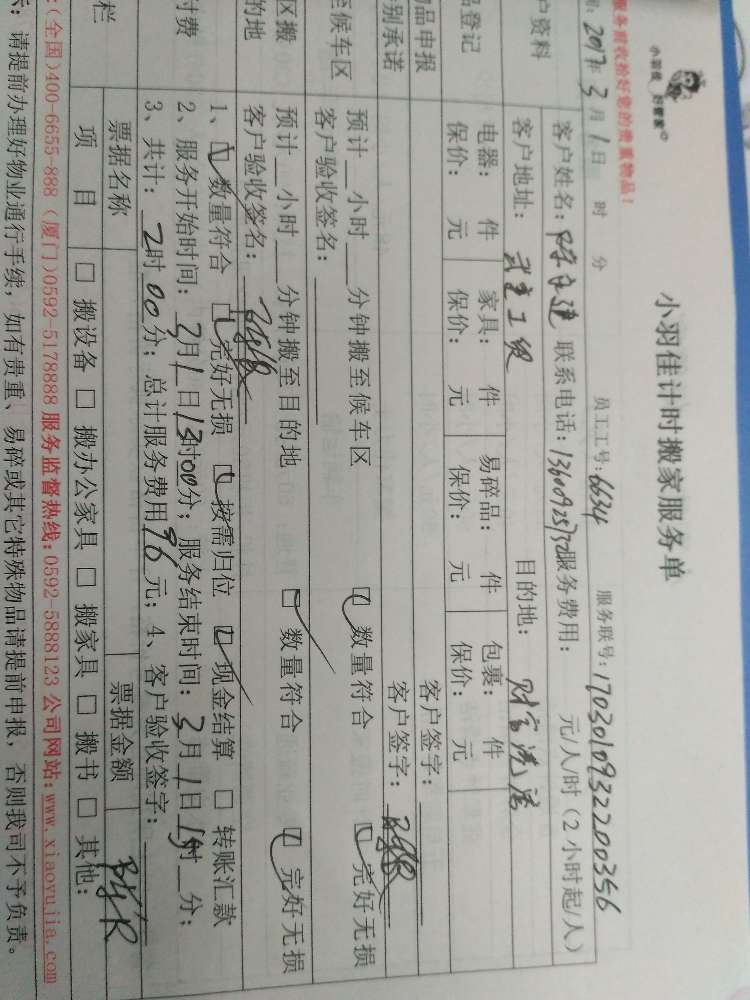 小羽佳 好管家
小羽佳计时搬家服务单
服务前收拾好您的贵重物品!
2017年3月1日 时 分 员工工号:6634 服务联号:1703010932200356
户资料 客户姓名: 联系电话: 服务费用: 元/人/时(2小时起/人)
客户地址: 目的地: 财富港湾
品登记 电器: 件 家具: 件 易碎品: 件 包裹: 件
保价: 元 保价: 元 保价: 元 保价: 元
物品申报 客户签字:
别承诺 客户签字:
至候车区 预计__小时__分钟搬至候车区 数量符合 完好无损
客户验收签名:
区搬 预计__小时__分钟搬至目的地 数量符合 完好无损
的地 客户验收签名:
1、数量符合 完好无损 按需归位 现金结算 □ 转账汇款
付费 2、服务开始时间:3月1日13时00分;服务结束时间:3月1日15时__分;
3、共计:2时00分;总计服务费用96元;4、客户验收签字:
栏 票据名称 票据金额
项 目 □ 搬设备 □ 搬办公家具 □ 搬家具 □ 搬书 □ 其他:
:(全国)400-6655-888 (厦门)0592-5178888 服务监督热线:0592-5888123 公司网站:www.xiaoyujia.com
示:请提前办理好物业通行手续,如有贵重、易碎或其它特殊物品请提前申报,否则我司不予负责。